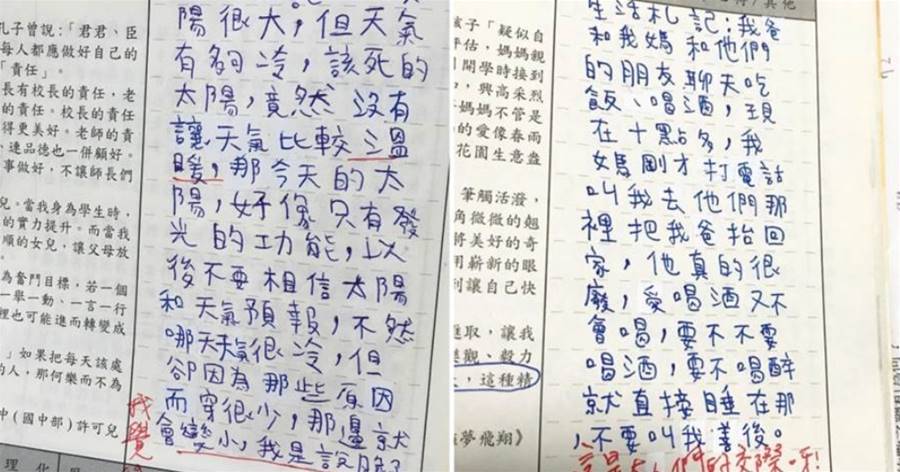 孔子曾說:「君君、臣
每人都應做好自己的
「責任」。
長有校長的責任,老
的責任。校長的責任
得更美好。老師的責
、連品德也一併顧好。
事做好,不讓師長們
兒。當我身為學生時,
的實力提升。而當我
順的女兒,讓父母放
為奮鬥目標,若一個
一舉一動、一言一行
裡也可能進而轉變成
」如果把每天該處
的人,那何樂而不為
中(國中部)許可兒
陽很大,但天氣
有夠冷,該死的
太陽,竟然沒有
讓天氣比較溫
暖,那今天的太
陽,好像只有發
光的功能,以
後不要相信太陽
和天氣預報,不然
哪天天氣很冷,但
卻因為那些原因
而穿很少,那邊就
會變小,我是說
我覺
理 化
孩子「疑似自
評估,媽媽親
開學時接到
和,興高采烈
媽媽不管是
的愛像春雨
花園生意盎
筆觸活潑,
角微微的翹
將美好的奇
用嶄新的眼
讓自己快
進取,讓我
樂觀、毅力
,這種精
夢飛翔》
其他
生活札記:我爸
和我媽和他們
的朋友聊天吃
飯、喝酒,現
在十點多,我
媽剛才打電話
叫我去他們那
裡把我爸抬回
家,他真的很
廢,愛喝酒又不
會喝,要不不要
喝酒,要不喝醉
就直接睡在那
,不要叫我善後。
這是大人們的交際呀!